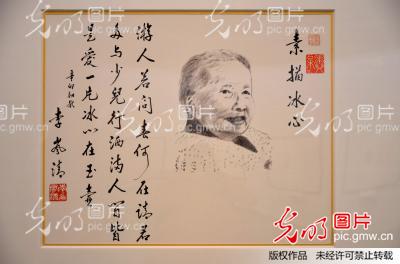 素描冰心
游人若问春何在请君
多与少儿行洒满人间皆
是爱一片冰心在玉壶
辛卯初
李岚清
光明图片
pic.gmw.cn
光明图片
pic.gmw.cn
光明图片
pic.gmw.cn
光明图片
pic.gmw.cn
光明图片
版权作品 未经许可禁止转载